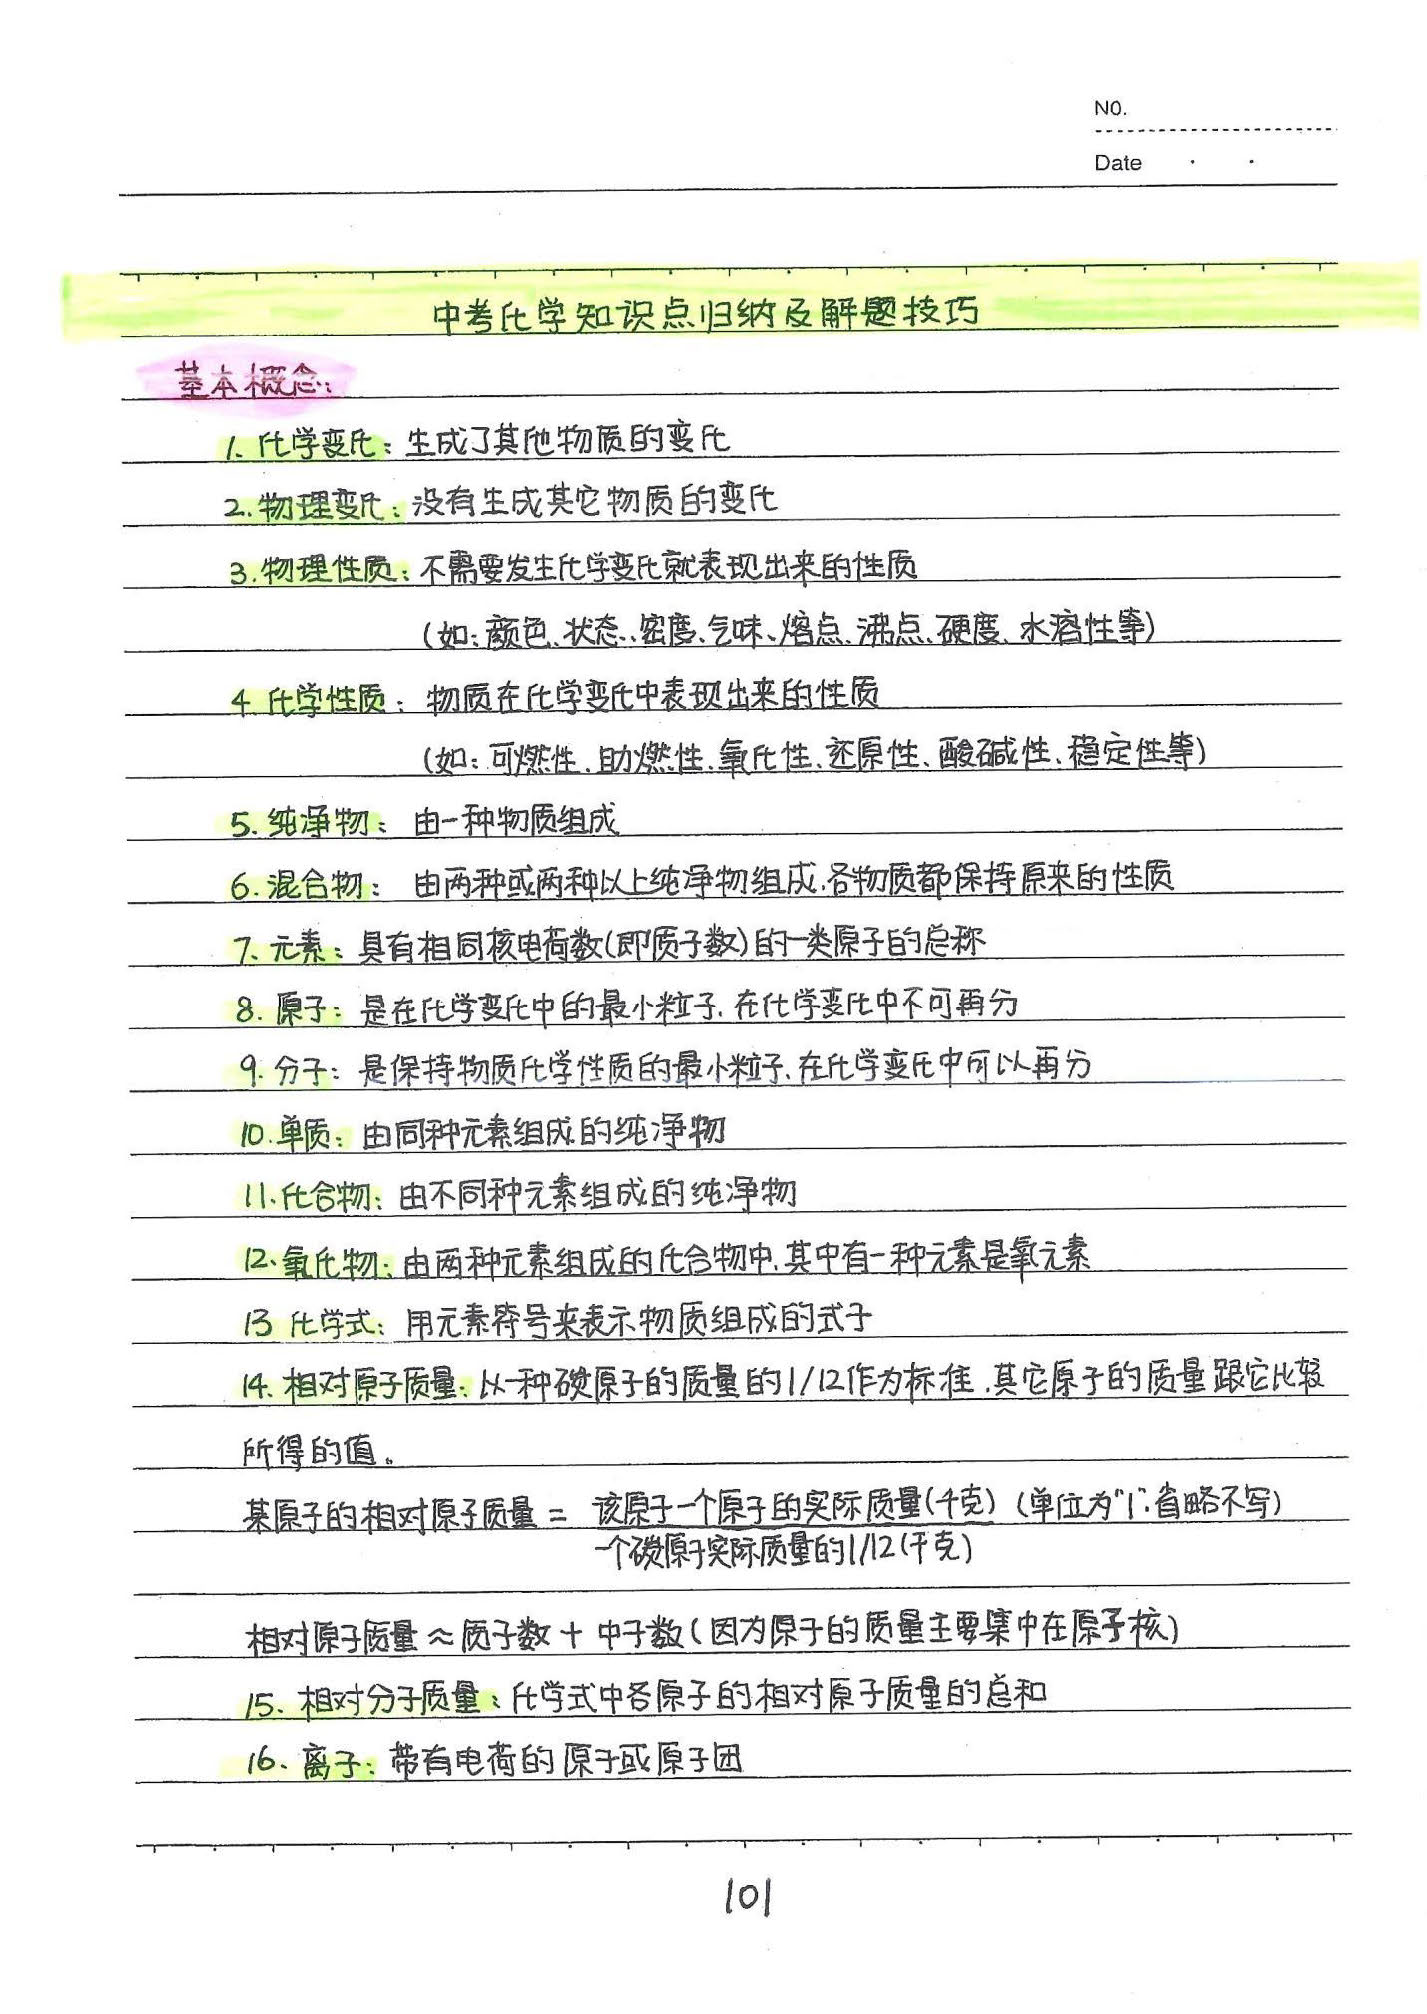 NO.
Date
中考化学知识点归纳及解题技巧
基本概念:
1. 化学变化: 生成了其他物质的变化
2. 物理变化: 没有生成其它物质的变化
3. 物理性质: 不需要发生化学变化就表现出来的性质
(如: 颜色、状态、密度、气味、熔点、沸点、硬度、水溶性等)
4. 化学性质: 物质在化学变化中表现出来的性质
(如: 可燃性、助燃性、氧化性、还原性、酸碱性、稳定性等)
5. 纯净物: 由一种物质组成
6. 混合物: 由两种或两种以上纯净物组成、各物质都保持原来的性质
7. 元素: 具有相同核电荷数(即质子数)的一类原子的总称
8. 原子: 是在化学变化中的最小粒子、在化学变化中不可再分
9. 分子: 是保持物质化学性质的最小粒子、在化学变化中可以再分
10. 单质: 由同种元素组成的纯净物
11. 化合物: 由不同种元素组成的纯净物
12. 氧化物: 由两种元素组成的化合物中、其中有一种元素是氧元素
13 化学式: 用元素符号来表示物质组成的式子
14. 相对原子质量: 以一种碳原子的质量的1/12作为标准、其它原子的质量跟它比较
所得的值。
某原子的相对原子质量 = 该原子一个原子的实际质量(千克) (单位为"1"、省略不写)
一个碳原子实际质量的1/12(千克)
相对原子质量 ≈ 质子数 + 中子数 (因为原子的质量主要集中在原子核)
15. 相对分子质量: 化学式中各原子的相对原子质量的总和
16. 离子: 带有电荷的原子或原子团
101